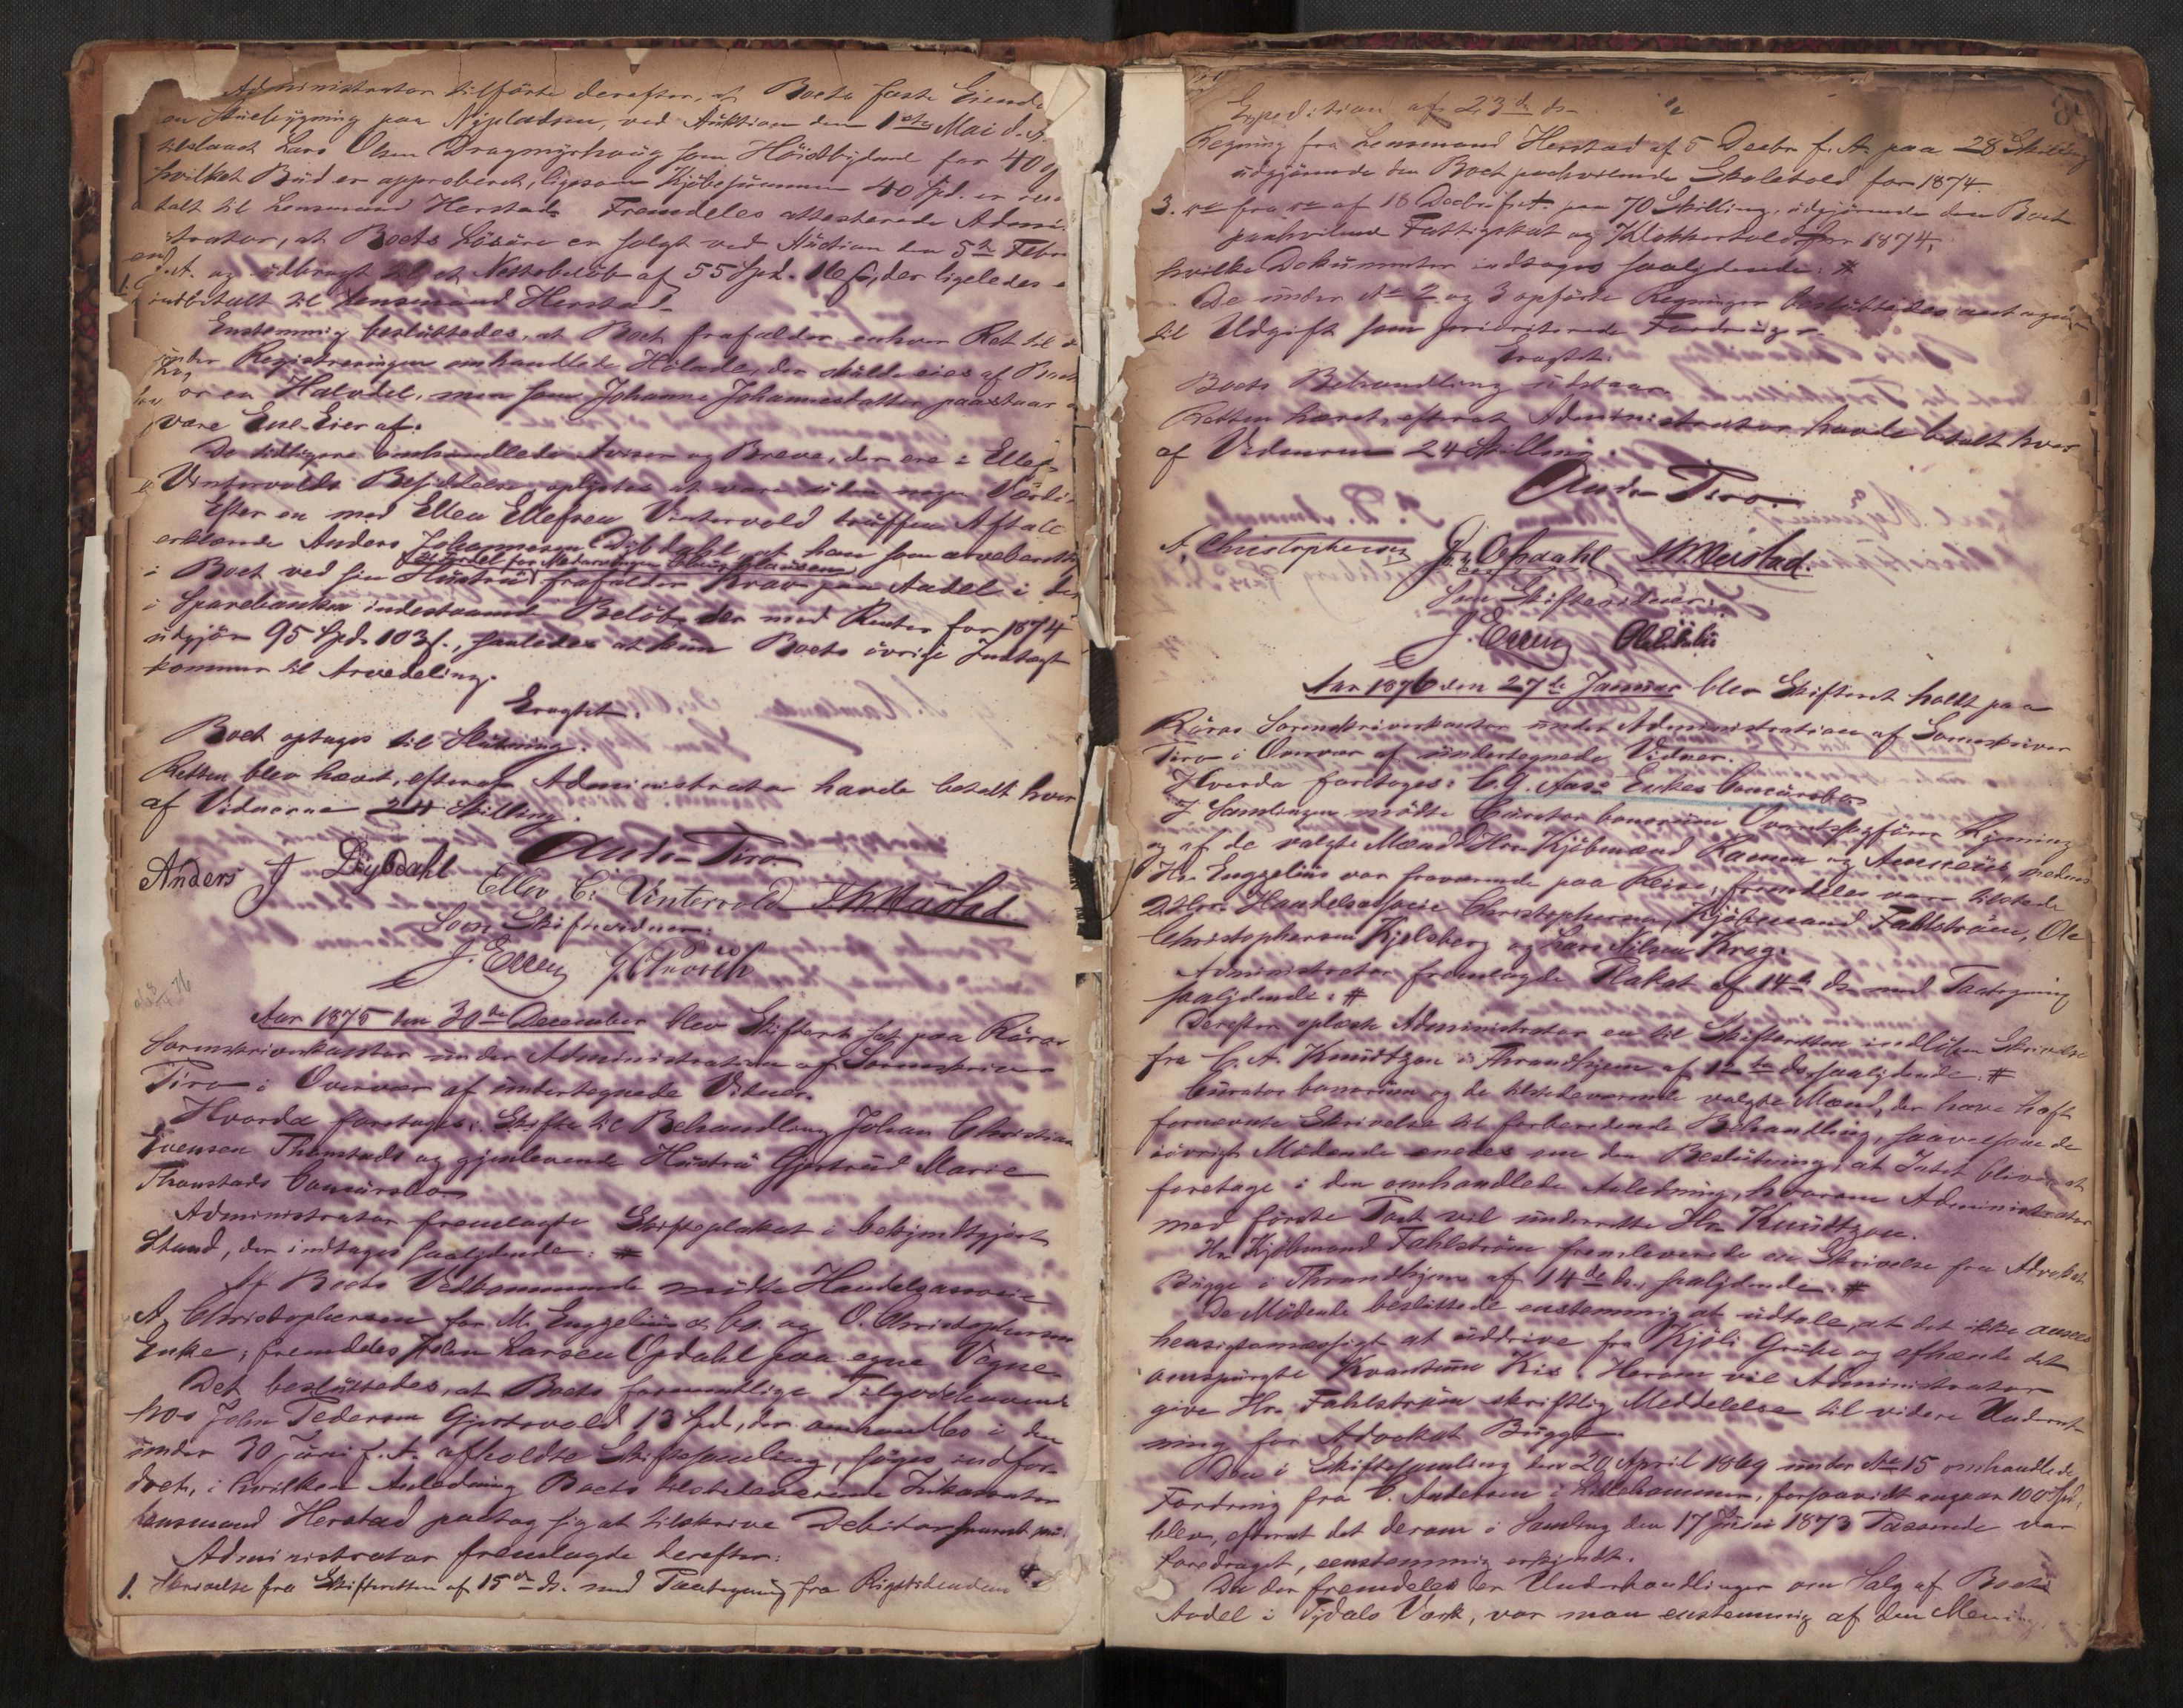 Administrator tilførte derefter, at Boets faste Eiend
en Stuebygning paa Nypladsen, ved Auktion den 1ste Mai d. A.
tilslaaet Lars Olsen Dragmyrhaug som Høistbydende for 40
hvilket Bud er approberet, ligesom Kjøbesummen 40 Spd. er
talt til Lensmand Herstad. Fremdeles attesterede Admini
strator, at Boets Løsøre er solgt ved Auction den 5te Febr
d. A. og udbragt til et Nettobeløb af 55 Spd. 16 s, der ligeledes
indbetalt til Lensmand Herstad.
Enstemmig besluttedes, at Boet frafalder enhver Ret til
under Registreringen omhandlede Hølade, der skulde eies af Boet
for en Halvdel, men som Johanne Johannesdatter paastaar
være Ene-Eier af.
De tidligere omhandlede Aviser og Breve, der ere i Ellef
Vintervolds Besiddelse, oplystes at være uden nogen Værdi.
Efter en med Ellev Ellefsen Vintervold truffen Aftale
erklærede Anders Johannesen Dybdahl, at han som arveberettiget
i Boet ved sin Hustru frafalder Krav paa Andel i det
i Sparebanken indestaaende Beløb, der med Renter for 1874
udgjør 95 Spd. 103 s., saaledes at kun Boets øvrige Indtægt
kommer til Arvedeling.
Eragtet:
Boet optages til Slutning.
Retten blev hævet, efterat Administrator havde betalt hver
af Vidnerne 24 Skilling.
Anders J Dybdahl
Ellev E. Vintervold
Som Skiftevidner:
Aar 1875 den 30te December blev Skifteret sat paa Røros
Sorenskriverkontor under Administration af Sorenskriver
Tiro i Overvær af undertegnede Vidner.
Hvorda foretoges: Skifte til Behandling Johan Christian
Evensen Thomstads og gjenlevende Hustru Gjertrud Marie
Thomstads Concursbo
Administrator fremlagte Skifteplakat i bekjendtgjort
Stand, der indtages saalydende: #
Af Boets Vedkommende mødte Handelsassocie
A. Christophersen for M. Enggelius & Co. og O. Christophersens
Enke; fremdeles John Larsen Opdahl paa egne Vegne.
Det besluttedes, at Boets formentlige Tilgodehavende
hos John Pedersen Gjersvold 13 Spd., der omhandles i den
under 30 Juni f. A. afholdte Skiftesamling, søges indfor-
dret, i hvilken Anledning Boets tilstedeværende Inkassator
Lensmand Herstad paatog sig at tilskrive Debitor
Administrator fremlagde derefter:
1. Skrivelse fra Skifteretten af 15de ds. med Paategning fra Rigstidendens
Expedition af 23de ds.
Regning fra Lensmand Herstad af 5 Decbr f. A. paa 28 Skilling
udgjørende den Boet paahvilende Skoletold for 1874.
3. do fra do af 18 Decbr. f. A. paa 70 Skilling, udgjørende den Boet
paahvilende Fattigskat og Klokkertold for 1874,
hvilke Dokumenter indtages saalydende: #
De under No 2 og 3 opførte Regninger besluttedes antagne
til Udgift som prioriterede Fordringer.
Eragtet:
Boets Behandling udstaar.
Retten hævet, efterat Administrator havde betalt hver
af Vidnerne 24 Skilling.
A. Christophersen J. L. Opdahl
Som Skiftevidner:
Aar 1876 den 27de Januar blev Skifteret holdt paa
Røros Sorenskriverkontor under Administration af Sorenskriver
Tiro i Overvær af undertegnede Vidner.
Hvorda foretoges: Enkes Concursbo
I Samlingen mødte Curator bonorum Overretssagfører
og af de valgte Mænd Hr. Kjøbmand Ramm og medens
Hr. Enggelius var fraværende paa Reise; fremdeles var tilstede
D'Hrr. Handelsassocie Christophersen, Kjøbmand Fahlstrøm, Ole
Christophersen Kjelsberg og Lars Nilsen Krog.
Administrator fremlagde Plakat af 14de ds. med Paategning
saalydende: #
Derefter oplæste Administrator en til Skifteretten indløben Skrivelse
fra C. A. Knudtzon i Throndhjem af ds. saalydende: #
Curator bonorum og de tilstedeværende valgte Mænd, der have havt
fornævnte Skrivelse til forberedende Behandling, saavelsom de
øvrigt Mødende enedes om den Beslutning, at Intet bliver at
foretage i den omhandlede Anledning, hvorom Administrator
med første Post vil underrette Hr. Knudtzon.
Hr. Kjøbmand Fahlstrøm fremleverede en Skrivelse fra Advokat
Bugge i Throndhjem af 14de ds., saalydende: #
De Mødende besluttede enstemmig at udtale, at det ikke ansees
hensigtsmæssigt at uddrive fra Kjøli Grube og afhænde det
omspurgte Kvantum Kis. Herom vil Administrator
give Hr. Fahlstrøm skriftlig Meddelelse til videre Underret-
ning for Advokat Bugge.
Den i Skiftesamling den 20 April 1869 under No 15 omhandlede
Fordring fra C. Andersen i Lillehammer, forsaavidt angaar 100 Spd.,
blev, efterat det derom i Samling den 17 Juni 1873 Passerede var
foredraget, eenstemmig erkjendt.
Da der fremdeles er Underhandlinger om Salg af Boets
Andel i Tydals Værk, var man enstemmig af den Mening,